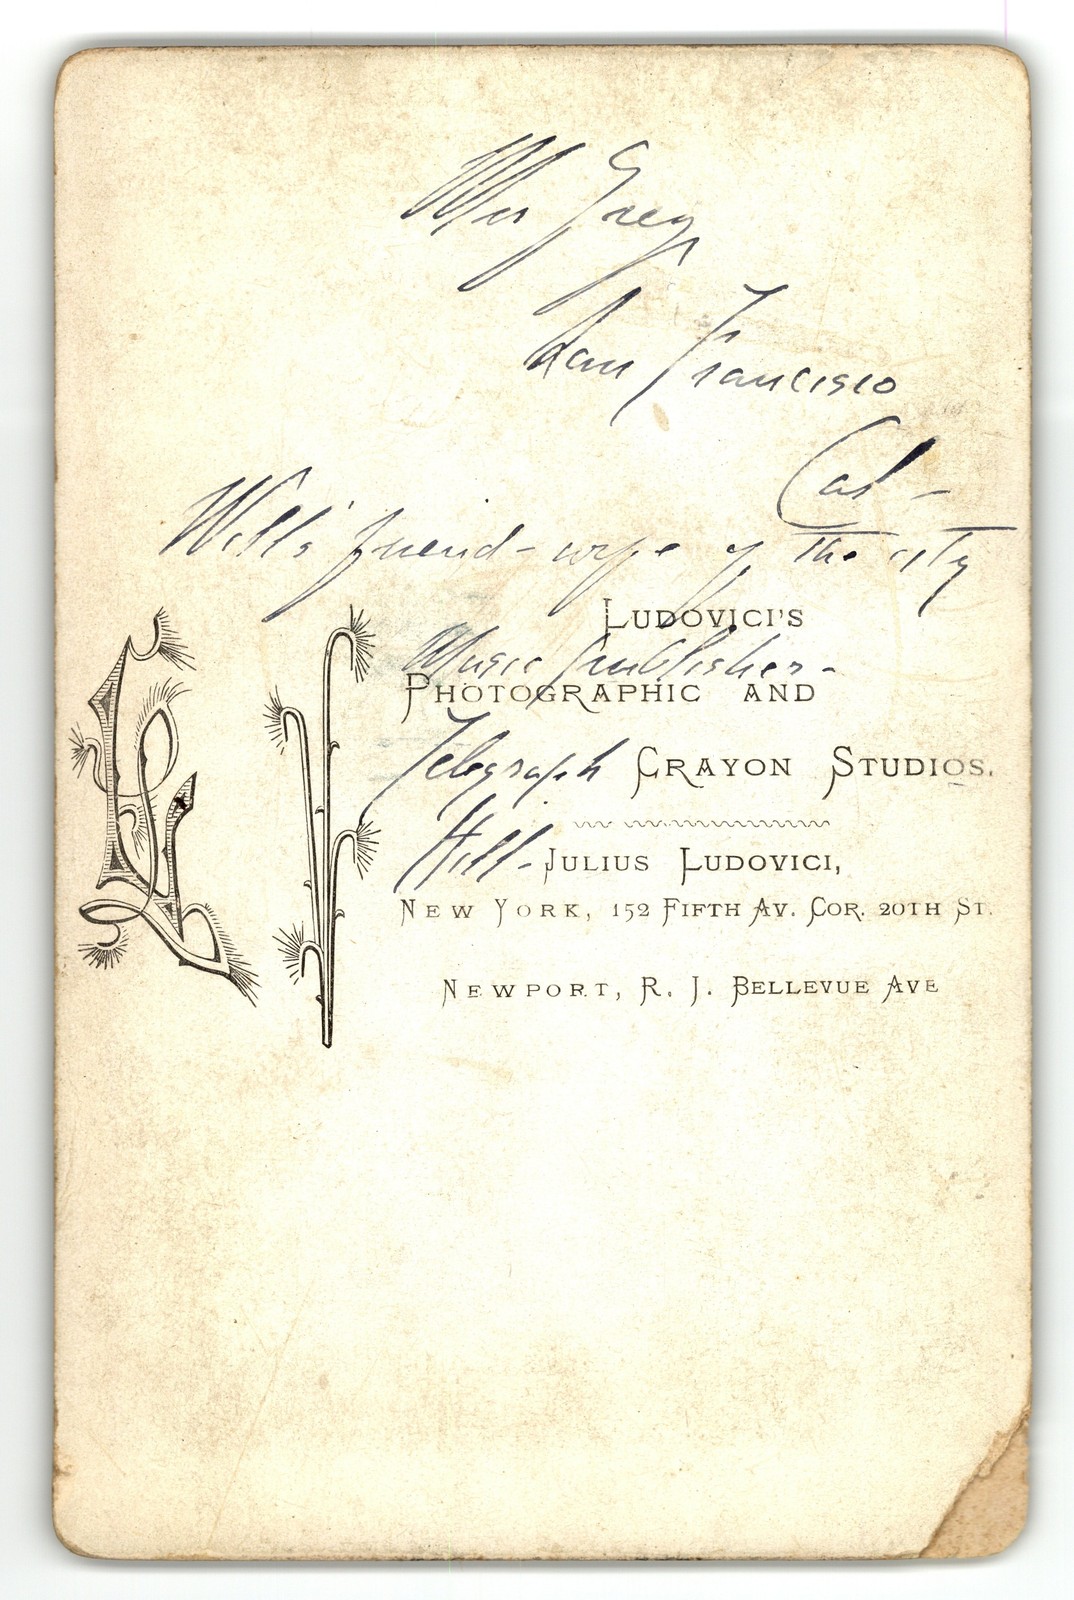 Mrs Grey
San Francisco
Cal -
Will's friend - wife of the city
LUDOVICI'S
Music publisher -
PHOTOGRAPHIC AND
Telegraph CRAYON STUDIOS.
Hill - JULIUS LUDOVICI,
NEW YORK, 152 FIFTH AV. COR. 20TH ST.
NEWPORT, R. J. BELLEVUE AVE